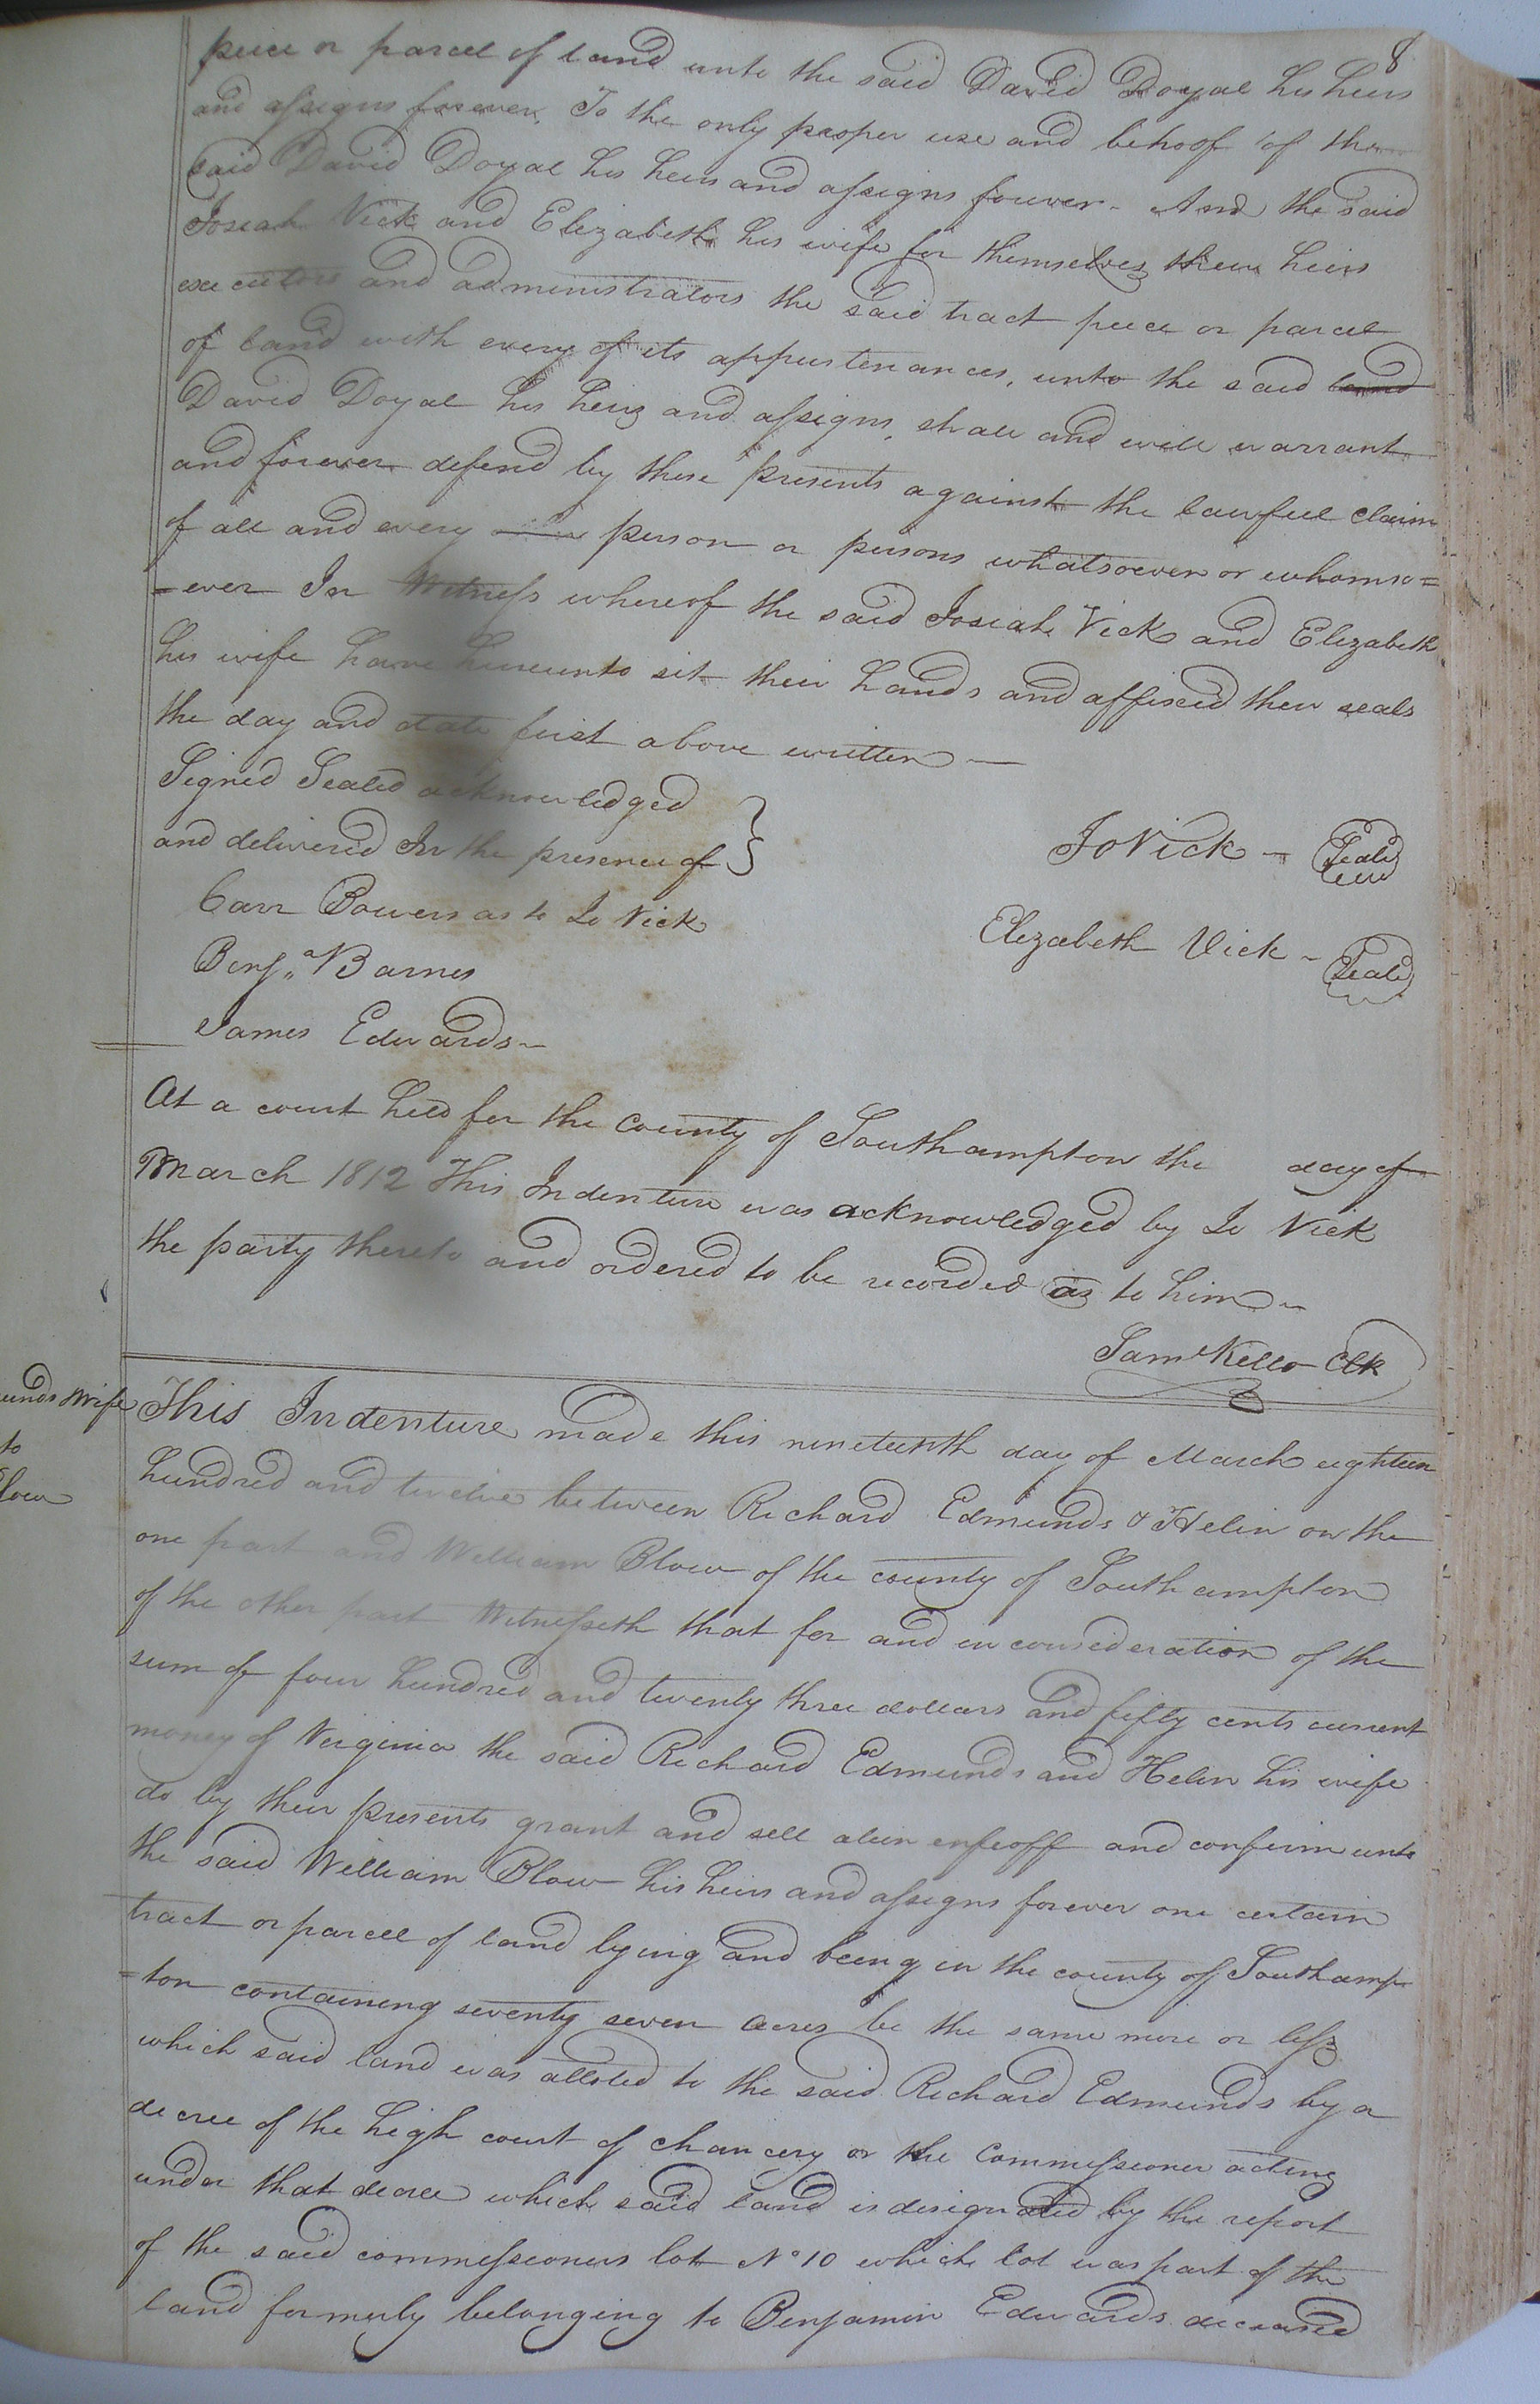 8
peice or parcel of land unto the said David Doyal his heirs
and assigns forever. To the only proper use and behoof of the
said David Doyal his heirs and assigns forever. And the said
Josiah Vick and Elizabeth his wife for themselves their heirs
executors and administrators the said tract peice or parcel
of land with every of its appurtenances, unto the said land
David Doyal his heirs and assigns, shall and will warrant
and forever defend by these presents against the lawfull claim
of all and every person or persons whatsoever or whomso=
=ever In Witness whereof the said Josiah Vick and Elizabeth
his wife have hereunto set their hands and affixed their seals
the day and date first above written —
Signed Sealed acknowledged
and delivered In the presence of }
Jo Vick - Seal
Carr Bowers as to Jo Vick
Elizabeth Vick - Seal
Benja Barnes
James Edwards -
At a court held for the county of Southampton the day of
March 1812 This Indenture was acknowledged by Jo Vick
the party thereto and ordered to be recorded as to him -
Saml Kello Clk
unds Wife
to
low
This Indenture made this nineteenth day of March eighteen
hundred and twelve between Richard Edmunds & Helen on the
one part and William Blow of the county of Southampton
of the other part Witnesseth that for and in consideration of the
sum of four hundred and twenty three dollars and fifty cents current
money of Virginia the said Richard Edmunds and Helen his wife
do by their presents grant and sell alien enfeoff and confirm unto
the said William Blow his heirs and assigns forever one certain
tract or parcell of land lying and being in the county of Southamp
=ton containing seventy seven acres be the same more or less
which said land was alloted to the said Richard Edmunds by a
decree of the high court of chancery or the commissioner acting
under that decree which said land is designated by the report
of the said commissioners lot No 10 which lot was part of the
land formerly belonging to Benjamin Edwards deceased